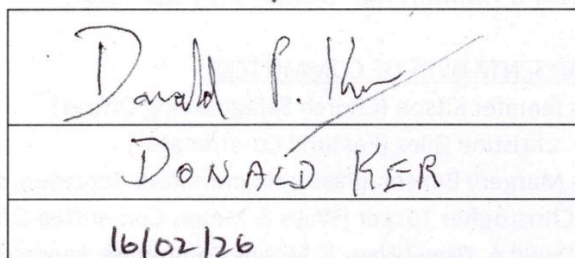 Donald P Ker
DONALD KER
16/02/26